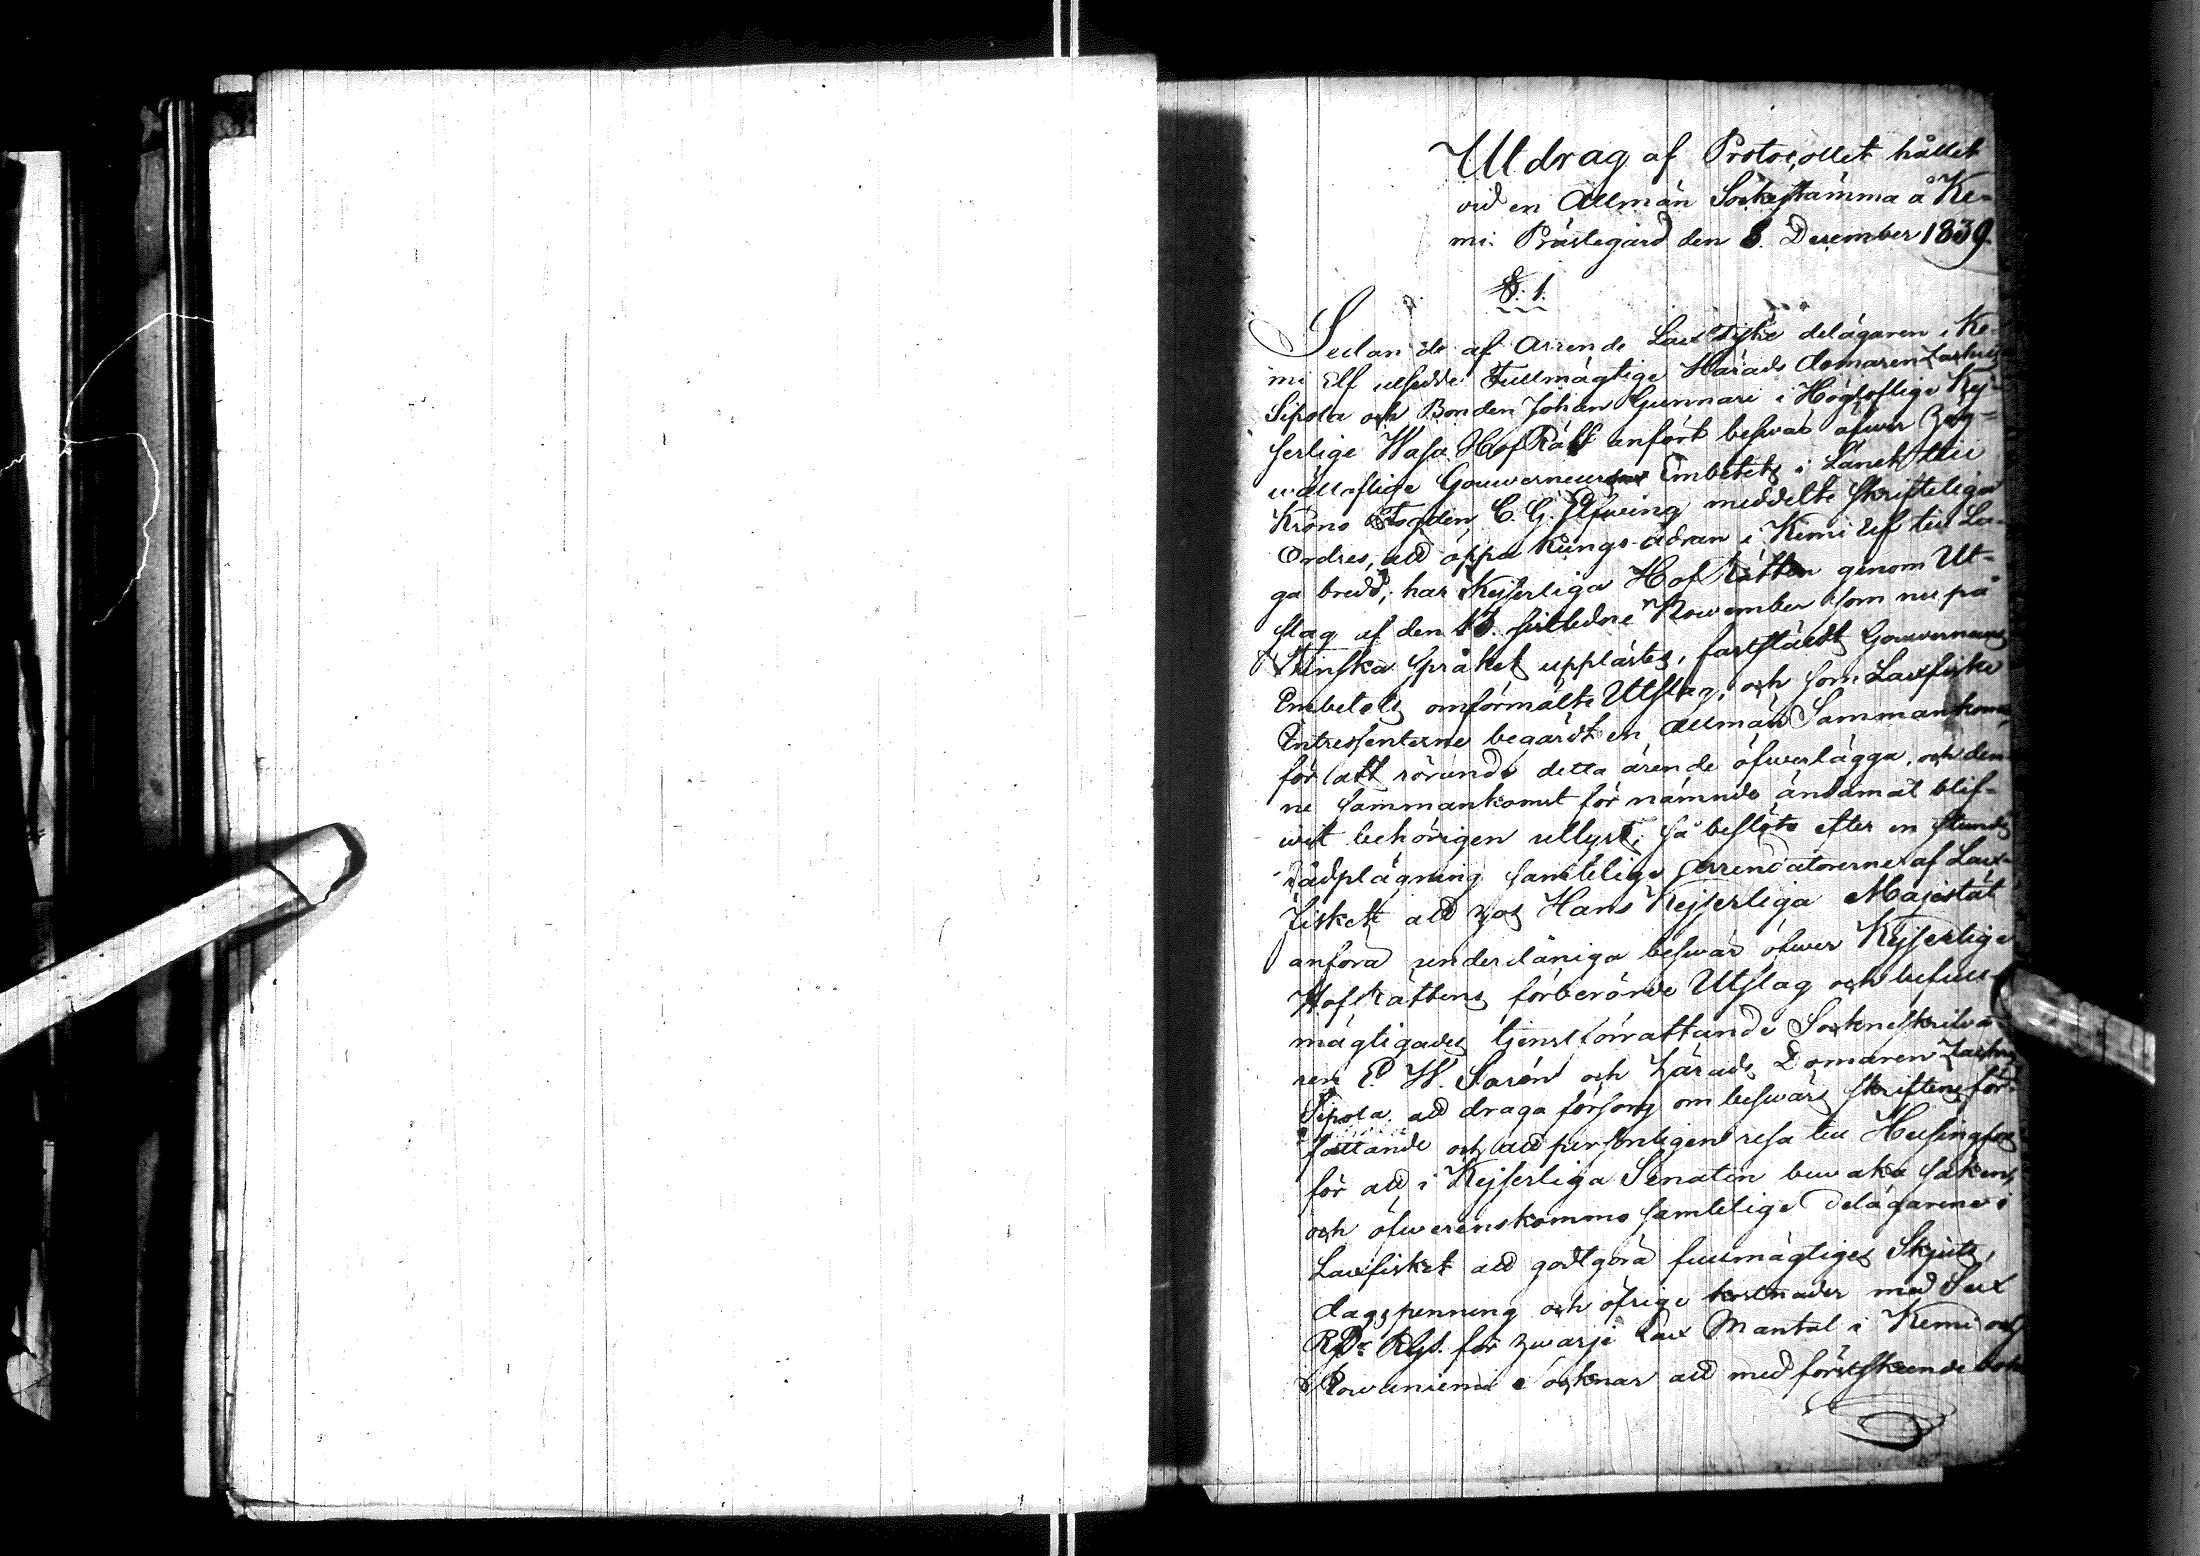 Utdrag af Protocollet hållet
vid en Allmän Sockestämma å Ke-
mi Prästegård den 8. December 1839.
§. 1.
Sedan de af Arrende Laxfiske delägaren i Ke-
mi Elf utsedde Fullmägtige Härads domaren Zachris
Sipola och Bonden Johan Gunnari i Högloflige Kej-
serlige Wasa Hof Rätt anfört beswär öfwer Hög-
wällofliga Gouverneurs Embetets i Länet till
Krono Fogden C. G. Elfving meddelte skrifteliga
Ordres, att öppa Kungs-ådran i Kemi Elf till La-
ga bredd; har Kejserliga Hof Rätten genom Ut-
slag af den 13. sistledne November som nu på
Finska språket upplästes, fastställt Gouverneurs
Embetets omförmälte Utslag, och som Laxfiske
Intressenterne begärdt en allmän Sammankomst
för att rörande detta ärende öfwerlägga, och den-
ne sammankomst för nämnde ändamål blif-
wit behörigen utlyst; så beslöto efter en stunds
rådplägning samtelige arrendatorerne af Lax-
fisket att hos Hans Kejserliga Majestät
anföra underdåniga beswär öfwer Kejserliga
Hof Rättens förberörde Utslag och befull-
mägtigades tjenstförrättande Sockneskrifwa-
ren E. W. Sarén och Härads Domaren Zachris
Sipola att draga försorg om beswärs skriftens för-
fattande och att personligen resa till Helsingfors
för att i Kejserliga Senaten bewaka saken,
och öfwerenskommo samtelige delägarene i
Laxfisket att godtgöra fullmägtiges Skjuts,
dagspenning och öfrige kostnader med Sex
RD:r Rgs. för hwarje Lax Mantal i Kemi och
Rowaniemi Socknar att med förstskeende